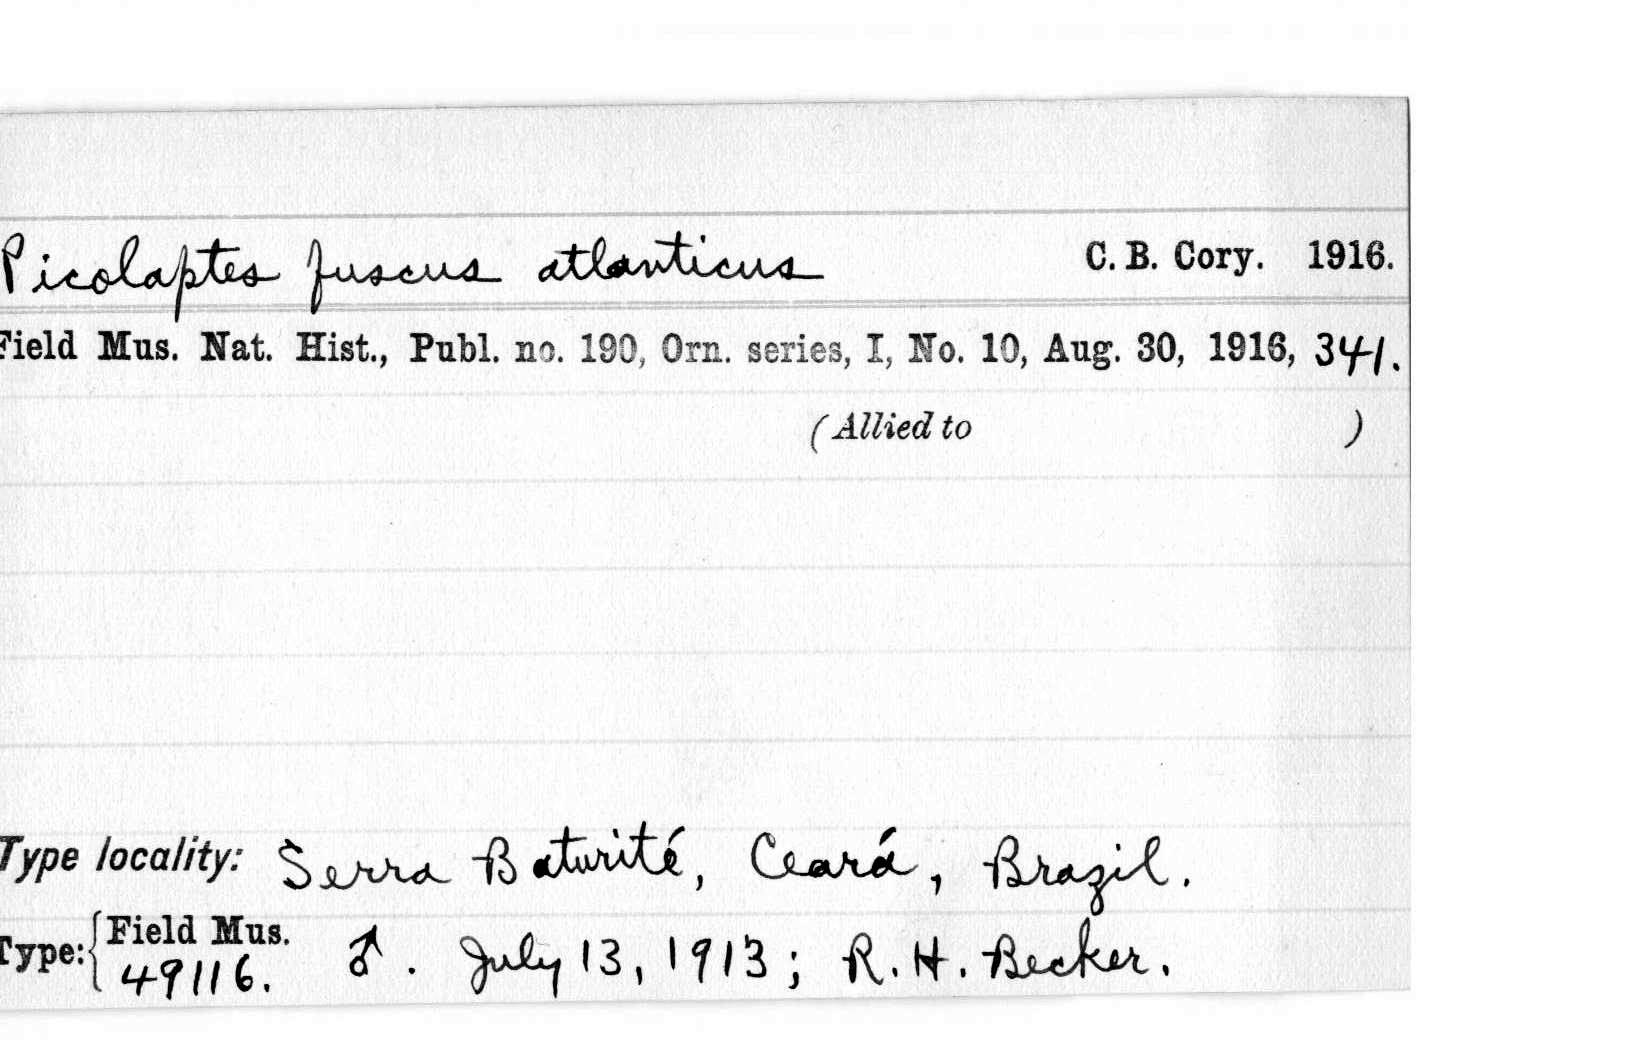 Picolaptes fuscus atlanticus C. B. Cory. 1916.
Field Mus. Nat. Hist., Publ. no. 190, Orn. series, I, No. 10, Aug. 30, 1916, 341.
(Allied to )
Type locality: Serra Baturité, Ceará, Brazil.
Type: { Field Mus. 49116. ♂. July 13, 1913; R. H. Becker.